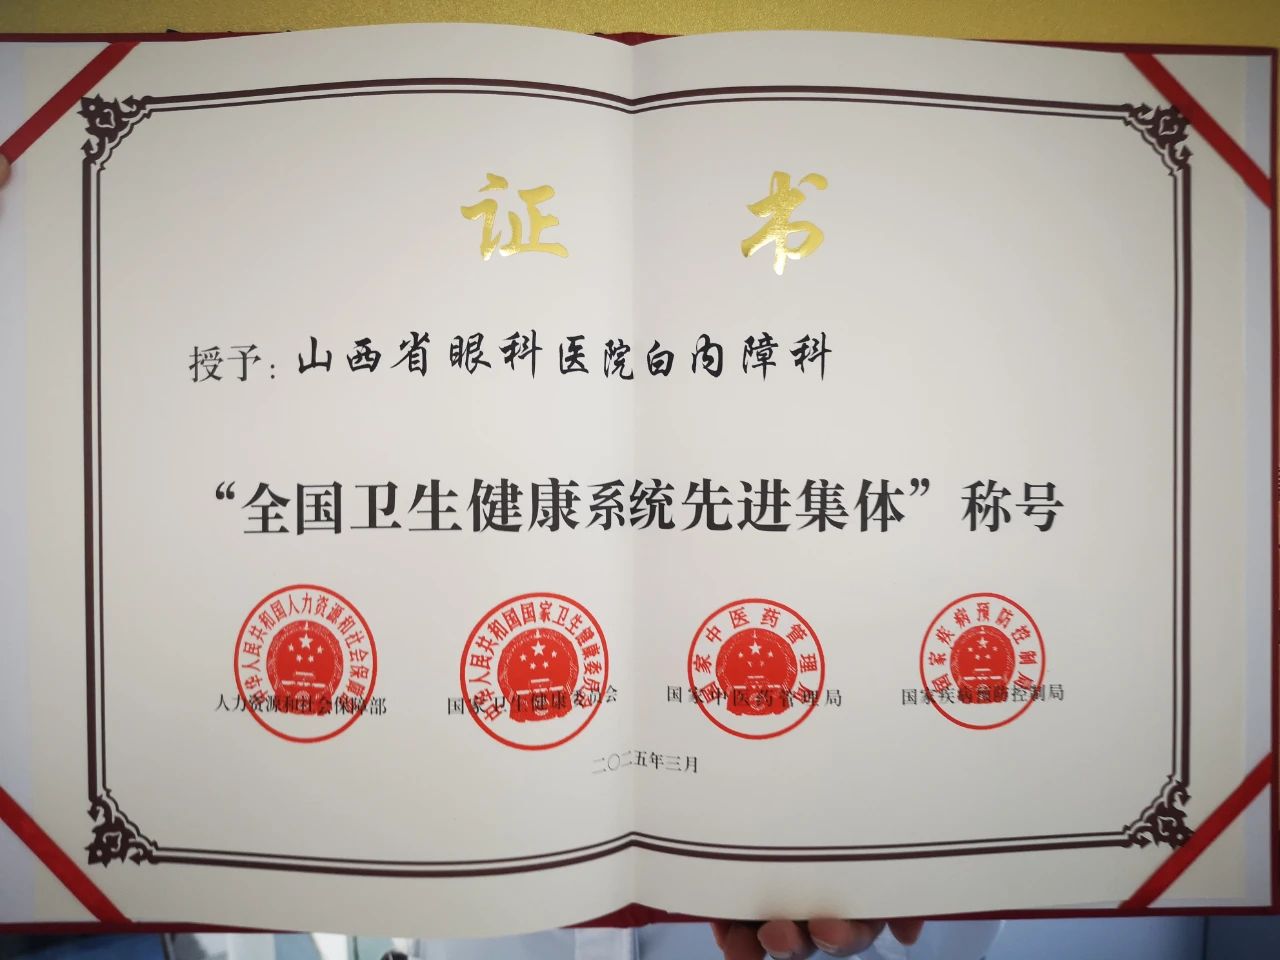 证书
授予：山西省眼科医院白内障科
“全国卫生健康系统先进集体”称号
中华人民共和国人力资源和社会保障部
中华人民共和国国家卫生健康委员会
国家中医药管理局
国家疾病预防控制局
人力资源和社会保障部
国家卫生健康委员会
国家中医药管理局
国家疾病预防控制局
二〇二五年三月